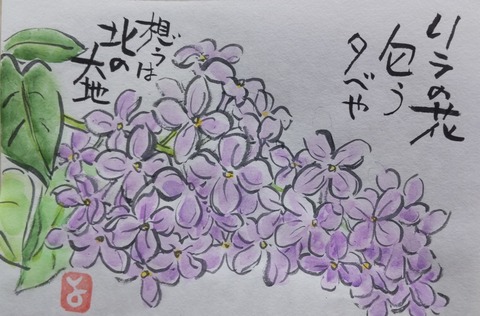 リラの花
匂う
夕べや
想うは
北の
大地